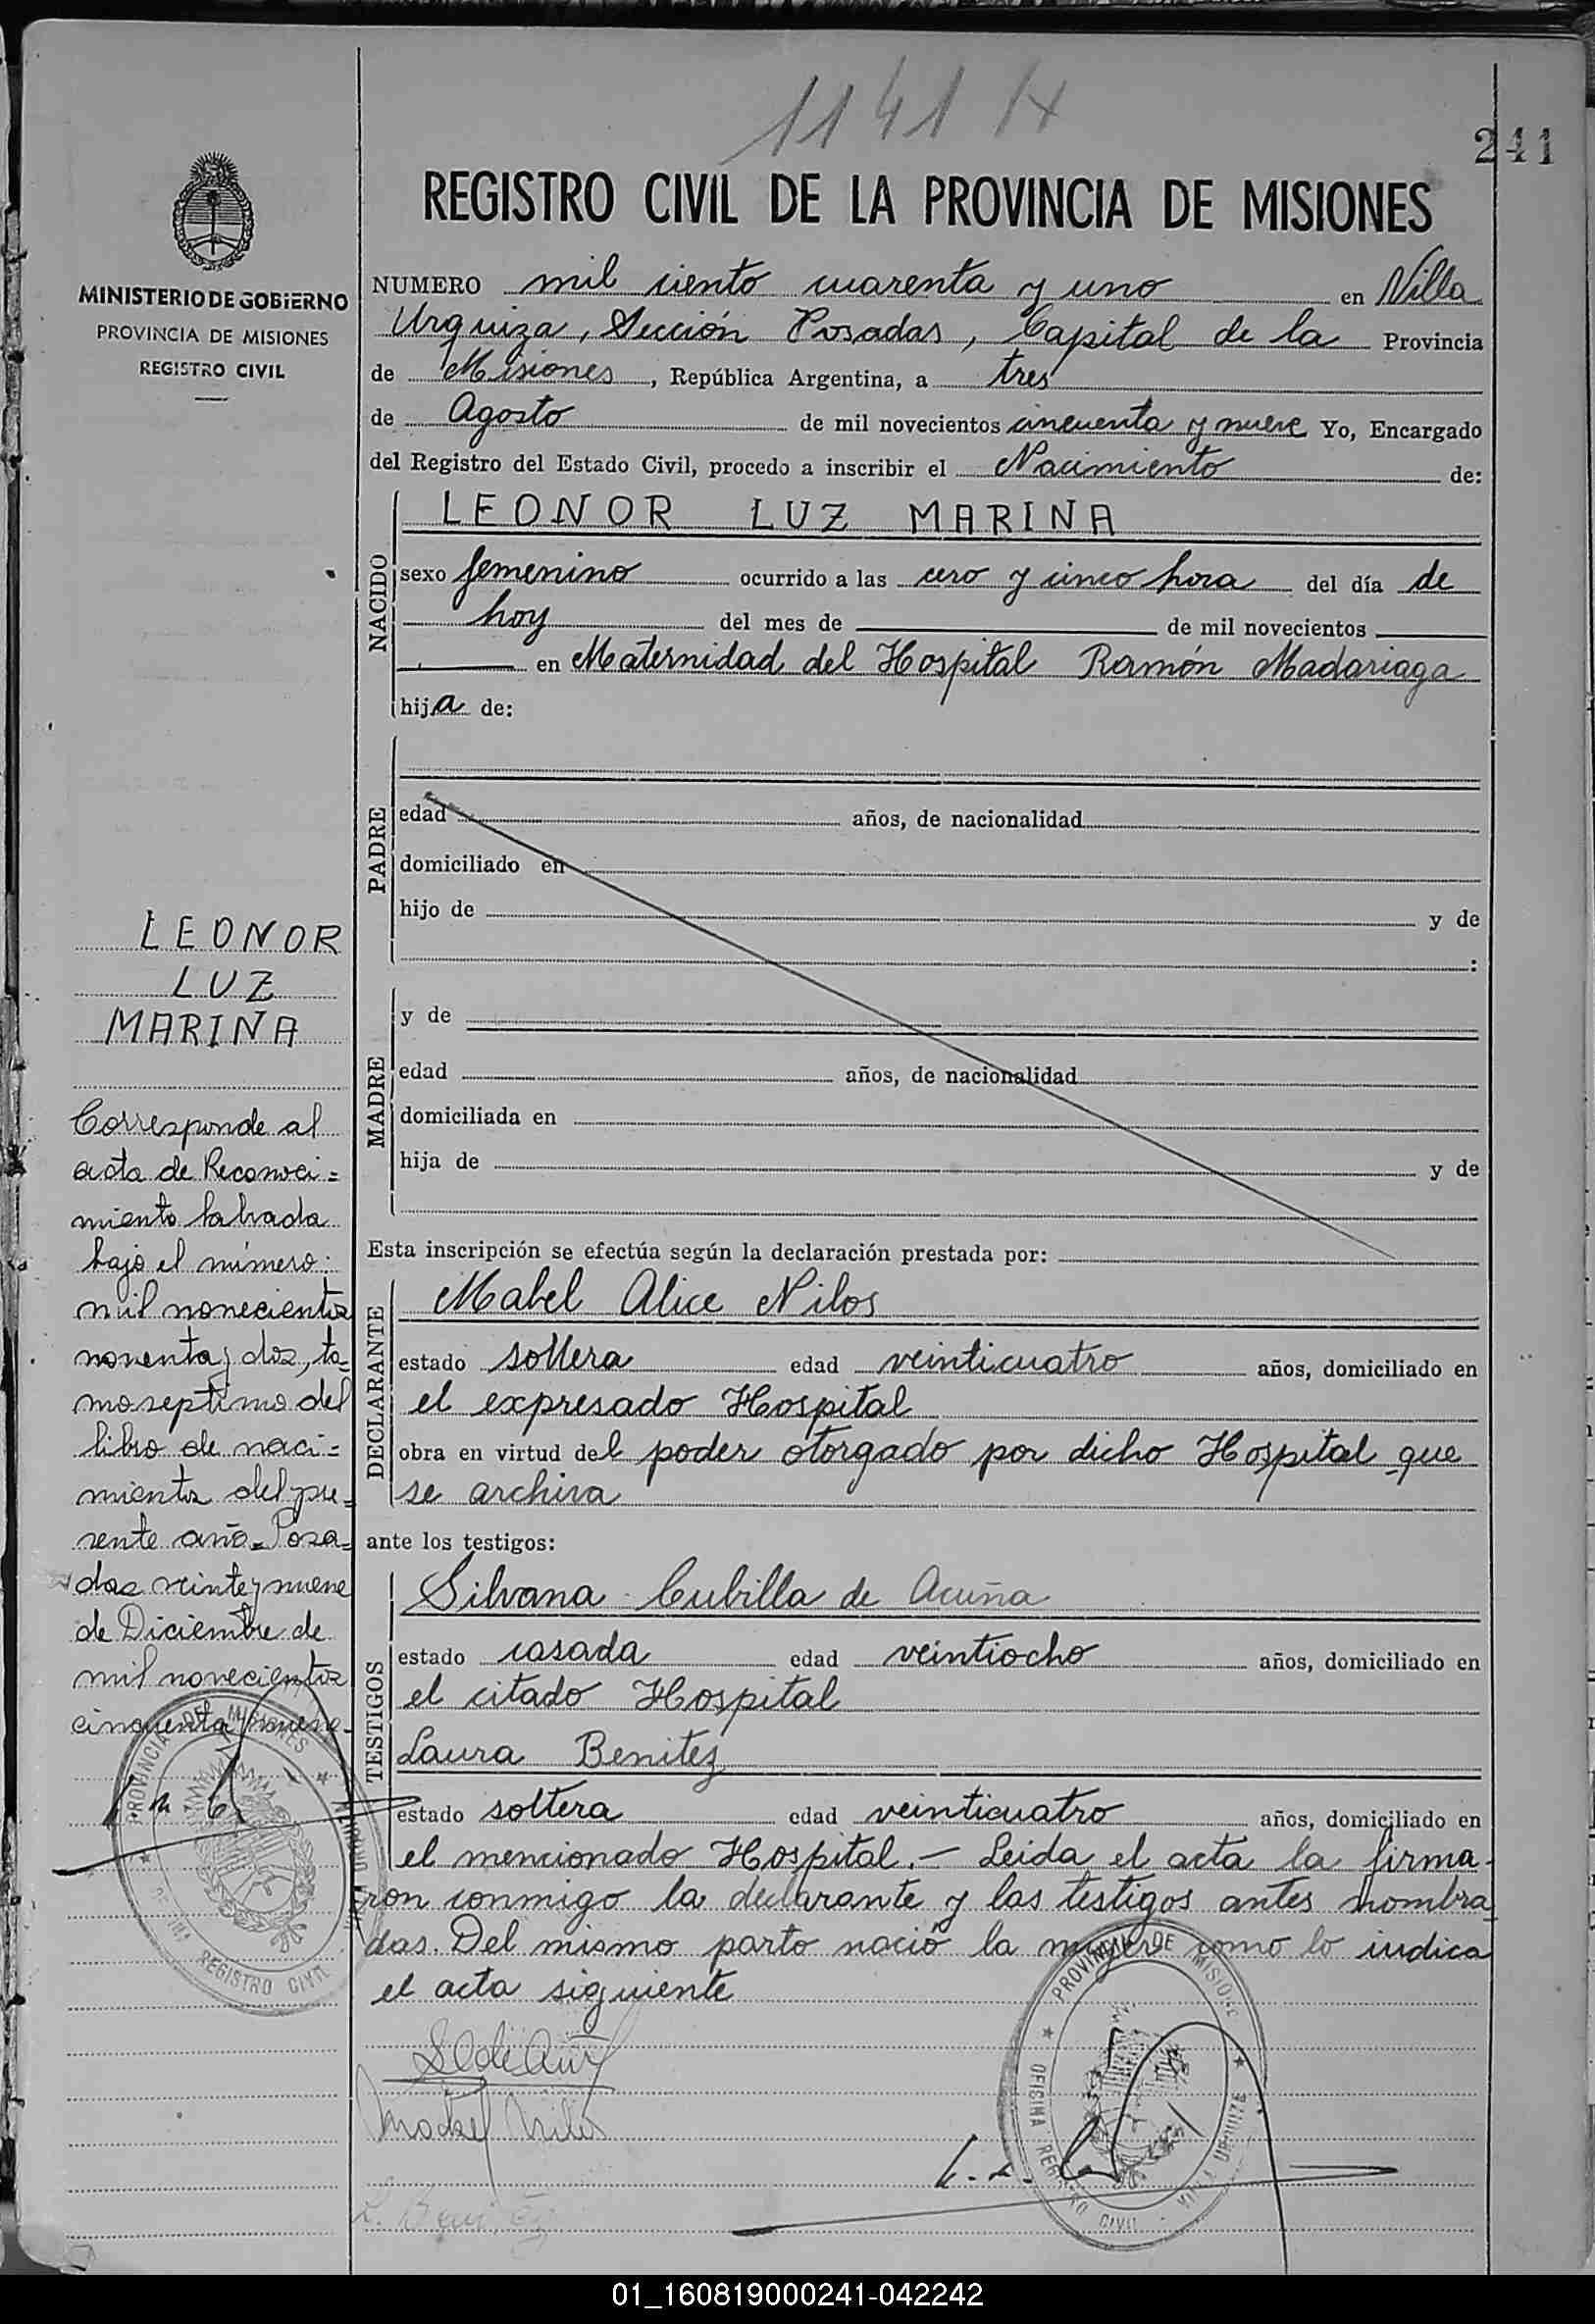 1141 H
241
REGISTRO CIVIL DE LA PROVINCIA DE MISIONES
MINISTERIO DE GOBIERNO
PROVINCIA DE MISIONES
REGISTRO CIVIL
NUMERO mil ciento cuarenta y uno en Villa
Urquiza, Sección Posadas, Capital de la Provincia
de Misiones, República Argentina, a tres
de Agosto de mil novecientos cincuenta y nueve Yo, Encargado
del Registro del Estado Civil, procedo a inscribir el Nacimiento de:
NACIDO
LEONOR LUZ MARINA
sexo femenino ocurrido a las cero y cinco hora del día de
hoy del mes de de mil novecientos
en Maternidad del Hospital Ramón Madariaga
hija de:
PADRE
edad años, de nacionalidad
domiciliado en
hijo de y de
:
MADRE
y de
edad años, de nacionalidad
domiciliada en
hija de y de
Esta inscripción se efectúa según la declaración prestada por:
DECLARANTE
Mabel Alice Nilos
estado soltera edad veinticuatro años, domiciliado en
el expresado Hospital
obra en virtud del poder otorgado por dicho Hospital que
se archiva
ante los testigos:
TESTIGOS
Silvana Cubilla de Acuña
estado casada edad veintiocho años, domiciliado en
el citado Hospital
Laura Benitez
estado soltera edad veinticuatro años, domiciliado en
el mencionado Hospital.- Leida el acta la firma-
ron conmigo la declarante y las testigos antes nombra-
das. Del mismo parto nació la mujer como lo indica
el acta siguiente
LEONOR
LUZ
MARINA
Corresponde al
acta de Reconoci=
miento labrada
bajo el número:
mil novecientos
noventa y dos, to=
mo septimo del
libro de naci=
mientos del pre=
sente año. Posa=
das veinte y nueve
de Diciembre de
mil novecientos
cincuenta y nueve.
PROVINCIA DE MISIONES
REGISTRO CIVIL
PROVINCIA DE MISIONES
OFICINA REGISTRO CIVIL
VILLA URQUIZA
01_160819000241-042242